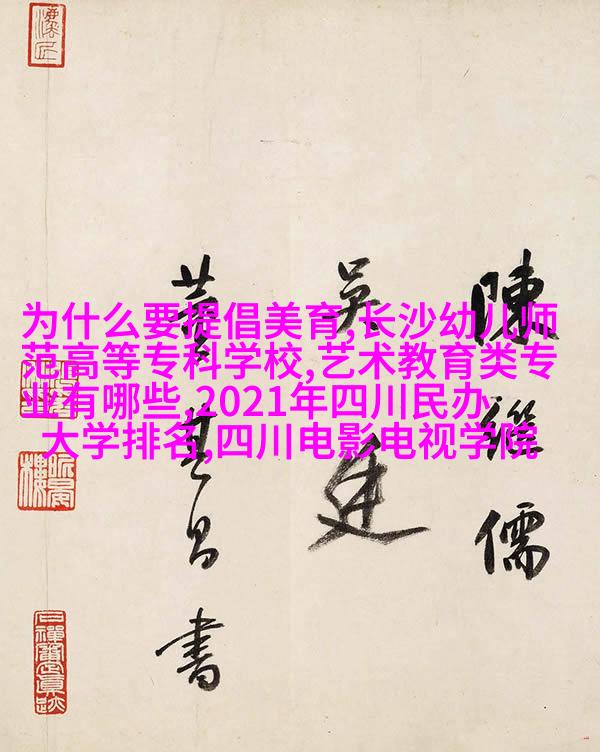 为什么要提倡美育,长沙幼儿师
范高等专科学校,艺术教育类专
业有哪些,2021年四川民办
大学排名,四川电影电视学院
陳繼儒
吳廷
董其昌書